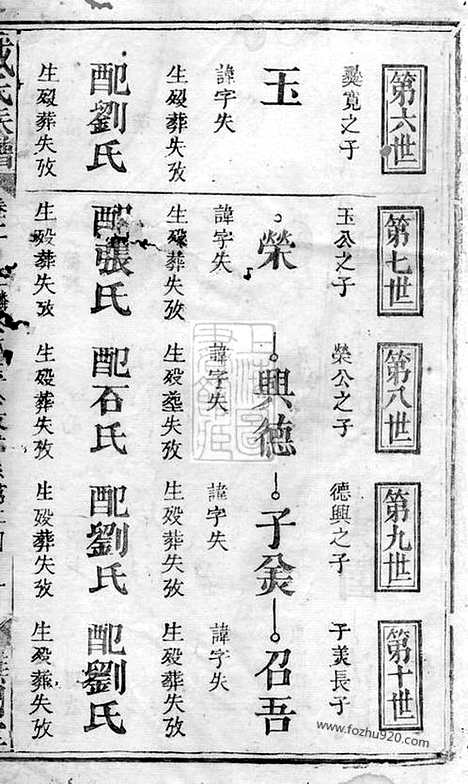 第六世
爕寬之子
玉
諱字失
生殁葬失攷
配劉氏
生殁葬失攷
第七世
玉公之子
榮
諱字失
生殁葬失攷
配張氏
生殁葬失攷
第八世
榮公之子
興德
諱字失
生殁塟失攷
配石氏
生殁葬失攷
第九世
德興之子
子美
諱字失
生殁葬失攷
配劉氏
生殁葬失攷
第十世
子美長子
召吾
諱字失
生殁葬失攷
配劉氏
生殁葬失攷
氏族譜
www.fozhu920.com